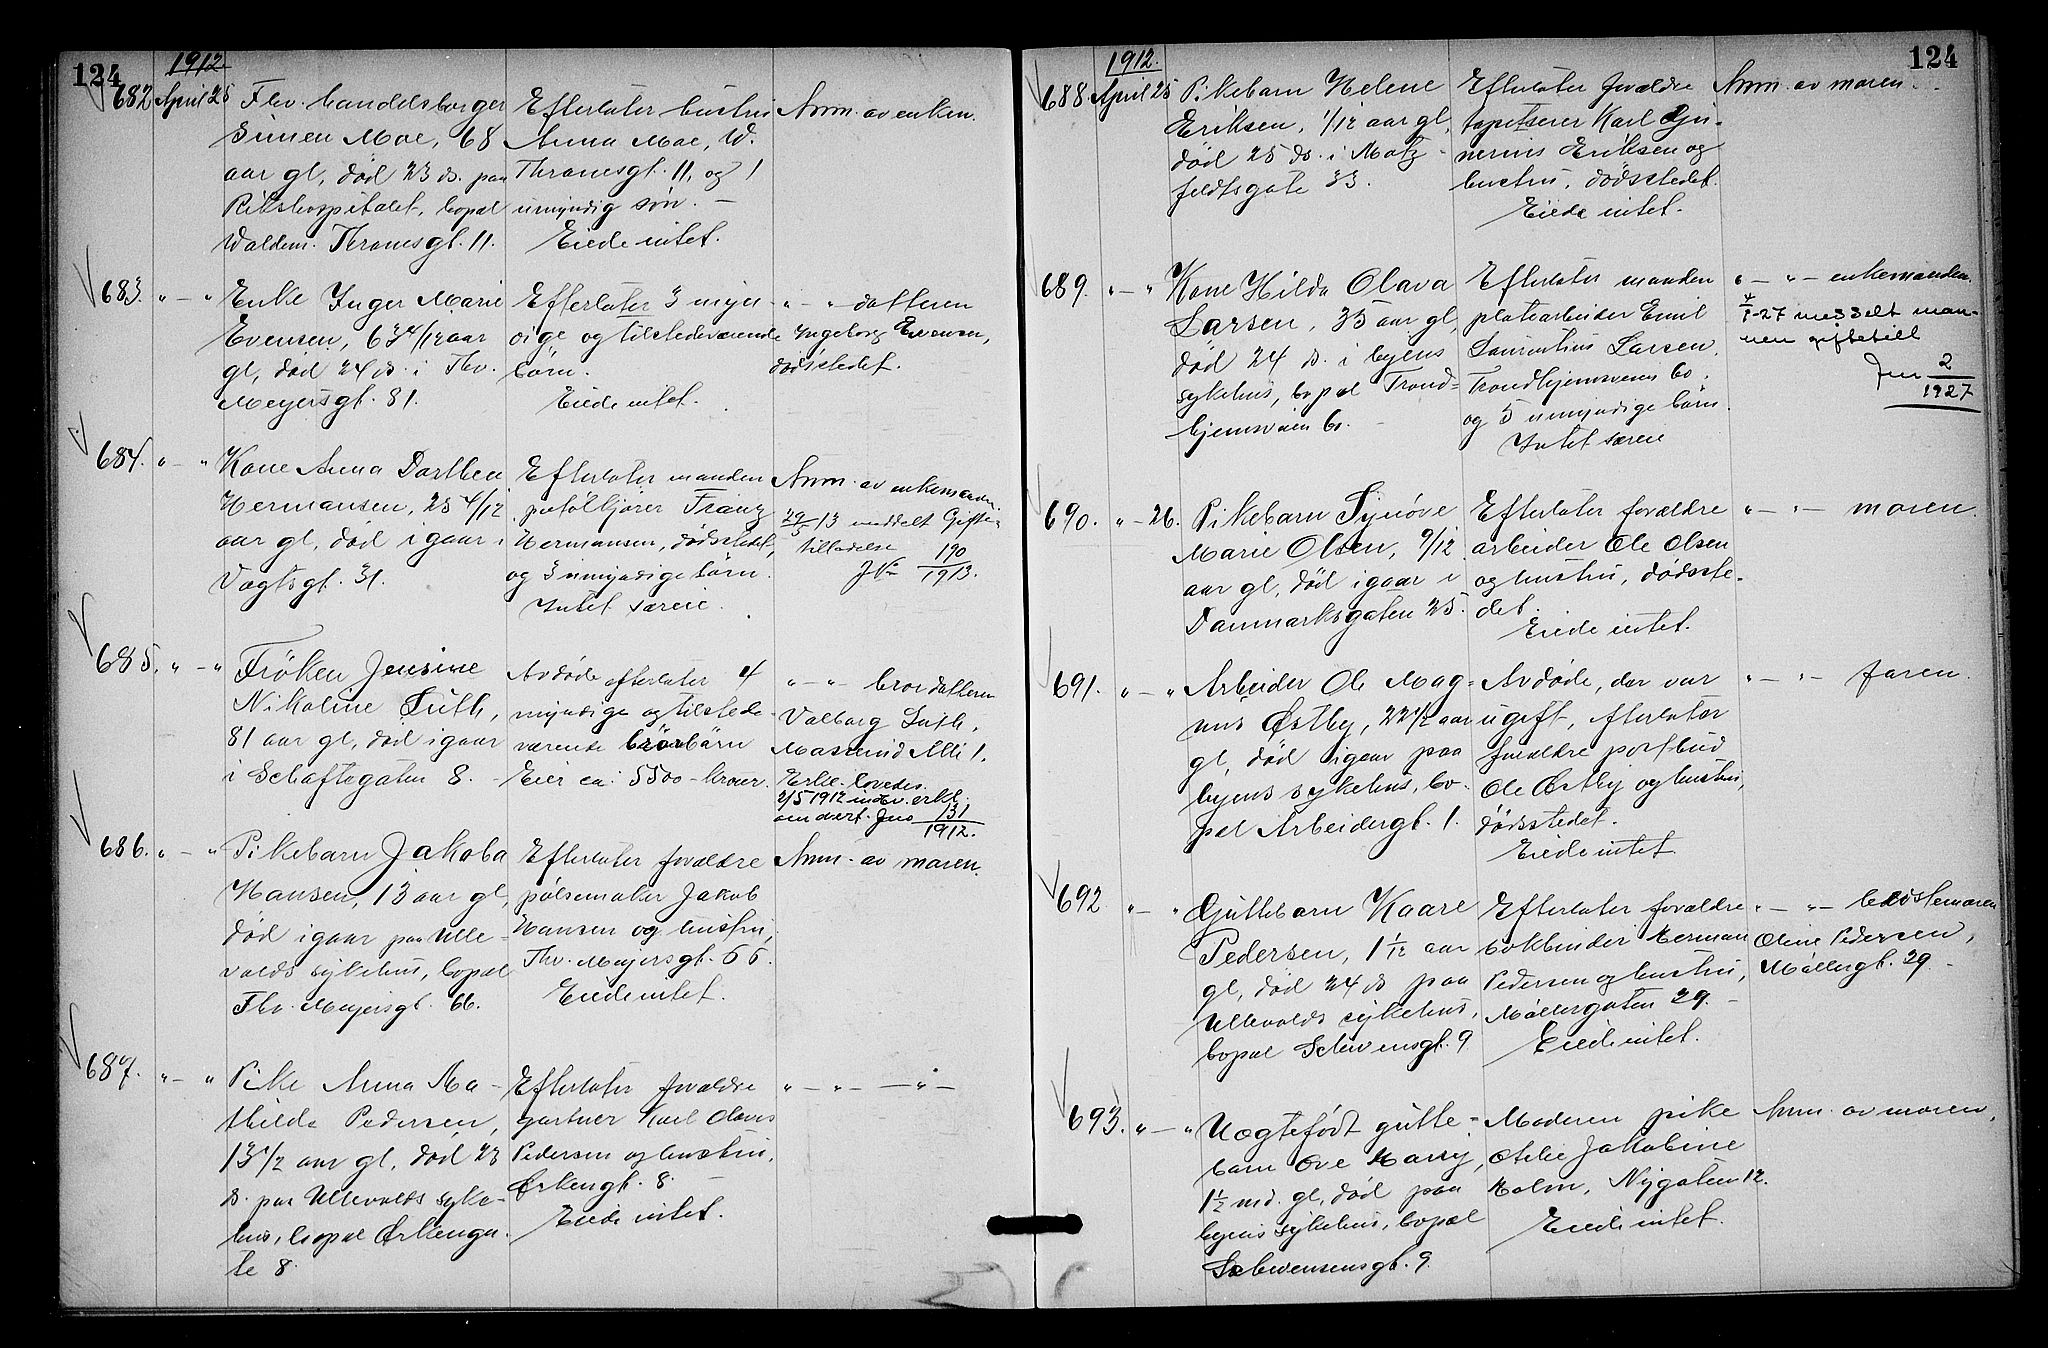 124
1912
682 April 25 Fhv. handelsborger Efterlater hustru Anm. av enken.
Simen Moe, 68 Anna Moe, W.
aar gl, død 23 ds. paa Thranesgt. 11, og 1
Rikshospitalet, bopæl umyndig søn. —
Waldem. Thranesgt. 11. Eiede intet.
683. " — " Enke Inger Marie Efterlater 3 myn- " — " — datteren
Evensen, 63 4/12 aar dige og tilstedeværende Ingeborg Evensen,
gl, død 24 ds. i Thv. børn. dødsstedet.
Meyersgt. 81. Eiede intet.
684. " — " Kone Anna Dorthea Efterlater manden Anm. av enkemanden
Hermansen, 25 4/12 Franz 29/5-13 meddelt Gifte-
aar gl, død igaar i Hermansen, dødsstedet, tilladelse
Vogtsgt. 31. og 3 umyndige børn. J№ 190/1913.
Intet særeie.
685. " — " Frøken Jensine Avdøde efterlater 4 " — " — brordatteren
Nikoline Luth, myndige og tilstede- Valborg Luth,
81 aar gl, død igaar værende brorbørn Masterud Alli 1.
i Schaftegaten 8. — Eier ca: 5500 kroner. Erkl. loves.
2/5 1912 indlev. erkl.
om overt. Jno 131/1912.
686. " — " Pikebarn Jakoba Efterlater forældre Anm. av moren.
Hansen, 13 aar gl, pølsemaker Jakob
død igaar paa Ulle- Hansen og hustru,
valds sykehus, bopæl Thv. Meyersgt. 66.
Thv. Meyersgt. 66. Eiede intet.
687. " — " Pike Anna Ma- Efterlater forældre " — " — " —
thilde Pedersen, gartner Karl Olaves
13 1/2 aar gl, død 23 Pedersen og hustru,
ds. paa Ullevalds syke- Ørkengt. 8. —
hus, bopæl Ørkenga- Eiede intet.
te 8.
124
1912.
688. April 25 Pikebarn Helene Efterlater forældre Anm. av moren.
Eriksen, 1/12 aar gl, tapetserer Karl Gju-
død 25 ds. i Motz- nerius Eriksen og
feldtsgate 33. hustru, dødsstedet.
Eiede intet.
689. " — " Kone Hilda Olava Efterlater manden " — " — enkemanden.
Larsen, 35 aar gl, platearbeider Emil 4/1-27 meddelt man-
død 24 ds. i byens Laurentius Larsen, nen giftetill
sykehus, bopæl Trond- Trondhjemsveien 60, Jnr 2/1927
hjemsveien 60. — og 5 umyndige børn.
Intet særeie
690. " — 26. Pikebarn Synøve Efterlater forældre " — " — moren.
Marie Olsen, 9/12 arbeider Ole Olsen
aar gl, død igaar i og hustru, dødsste-
Danmarksgaten 25. det.
Eiede intet.
691. " — " Arbeider Ole Mag- Avdøde, der var " — " — faren.
nus Østby, 22 1/2 aar ugift, efterlater
gl, død igaar paa forældre postbud
byens sykehus, bo- Ole Østby og hustru,
pæl Arbeidergt. 1. dødsstedet.
Eiede intet
692. " — " Guttebarn Kaare Efterlater forældre " — " — bedstemoren
Pedersen, 1 1/12 aar bokbinder Herman Oline Pedersen,
gl, død 24 ds paa Pedersen og hustru, Møllergt. 29. —
Ullevalds sykehus, Møllergaten 29. —
bopæl Schwensgt. 9 Eiede intet.
693. " — " Uegtefødt gutte- Moderen pike Anm. av moren.
barn Ove Harry, Otelie Jakobine
1 1/2 md. gl, død paa Holm, Nygaten 12.
byens sykehus, bopæl Eiede intet.
Schwensensgt. 9.